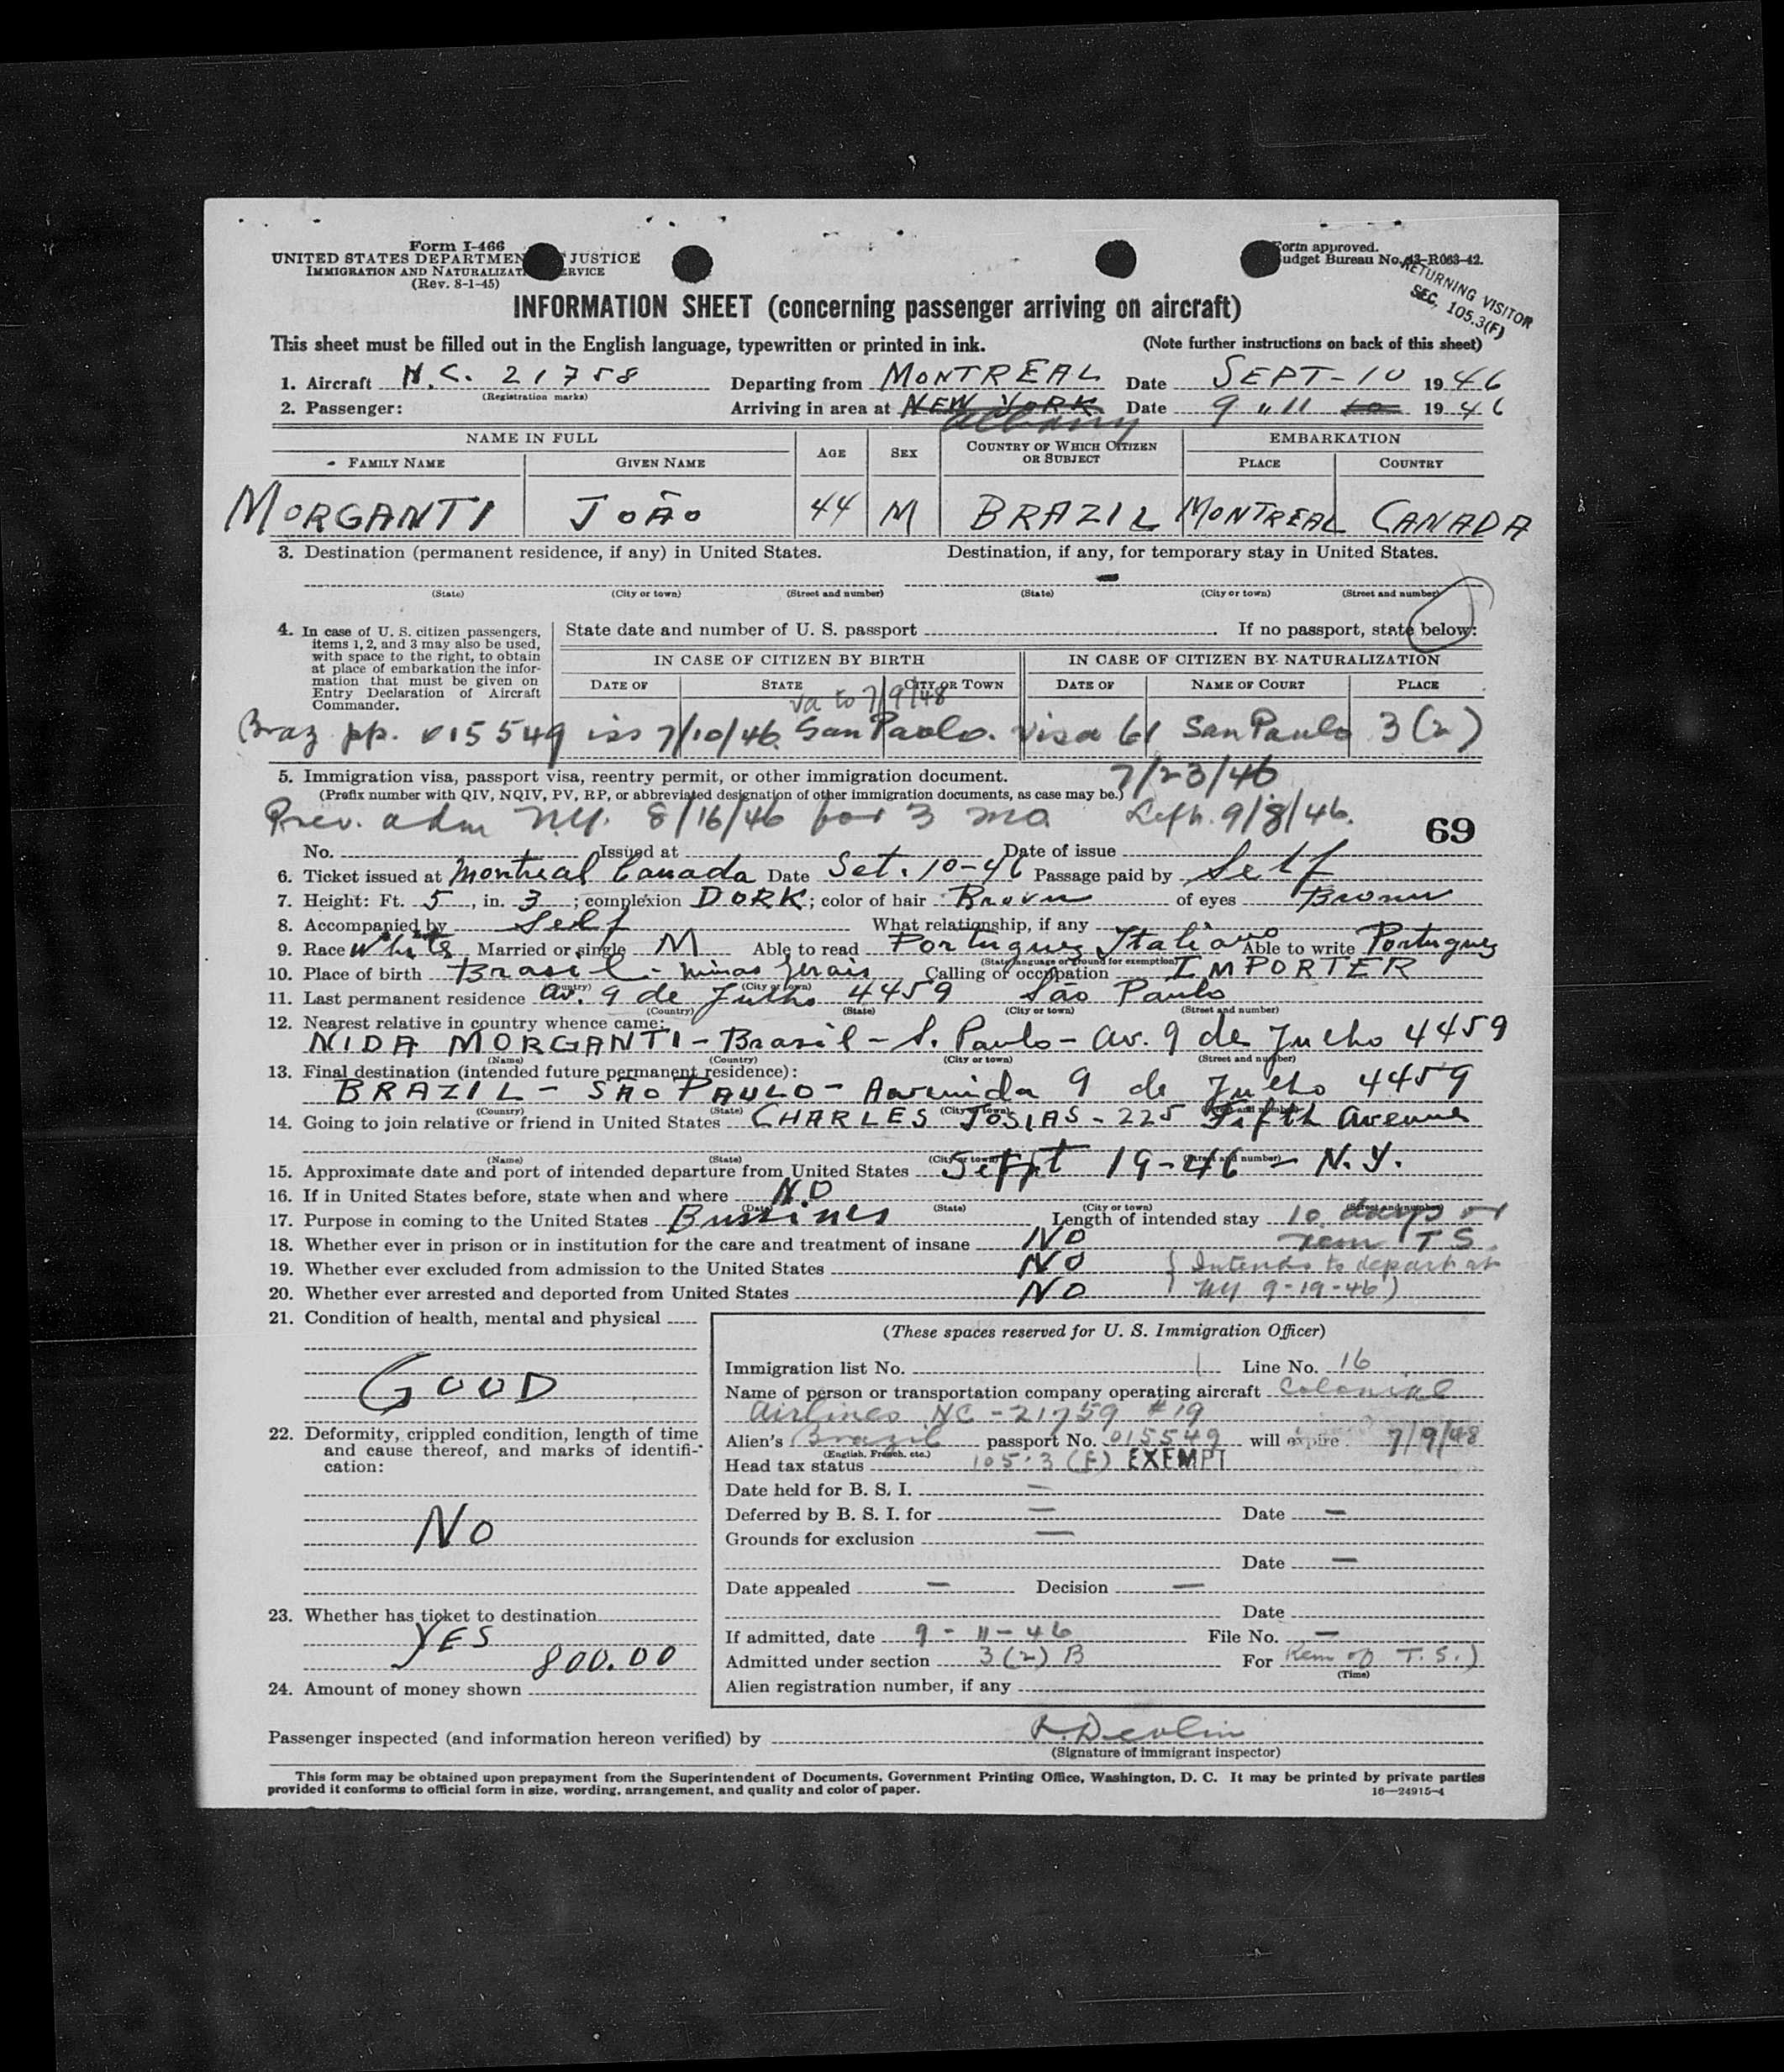 Form I-466
UNITED STATES DEPARTMEN JUSTICE
IMMIGRATION AND NATURALIZAT ERVICE
(Rev. 8-1-45)
Form approved.
udget Bureau No. 43-R063-42.
RETURNING VISITOR
SEC. 105.3(F)
INFORMATION SHEET (concerning passenger arriving on aircraft)
This sheet must be filled out in the English language, typewritten or printed in ink. (Note further instructions on back of this sheet)
1. Aircraft N.C. 21758 Departing from MONTREAL Date SEPT-10 1946
(Registration marks)
2. Passenger: Arriving in area at NEW YORK Date 9 " 11 10 1946
Albany
NAME IN FULL AGE SEX COUNTRY OF WHICH CITIZEN OR SUBJECT EMBARKATION
FAMILY NAME GIVEN NAME PLACE COUNTRY
MORGANTI JOÃO 44 M BRAZIL MONTREAL CANADA
3. Destination (permanent residence, if any) in United States. Destination, if any, for temporary stay in United States.
(State) (City or town) (Street and number) (State) (City or town) (Street and number)
4. In case of U. S. citizen passengers, items 1, 2, and 3 may also be used, with space to the right, to obtain at place of embarkation the information that must be given on Entry Declaration of Aircraft Commander.
State date and number of U. S. passport If no passport, state below:
IN CASE OF CITIZEN BY BIRTH IN CASE OF CITIZEN BY NATURALIZATION
DATE OF STATE CITY OR TOWN DATE OF NAME OF COURT PLACE
va to 7/9/48
Braz pp. 015549 iss 7/10/46 San Paolo. Visa 61 San Paulo 3(2)
5. Immigration visa, passport visa, reentry permit, or other immigration document. 7/23/46
(Prefix number with QIV, NQIV, PV, RP, or abbreviated designation of other immigration documents, as case may be.)
Prev. adm NY. 8/16/46 for 3 mo Left. 9/8/46.
69
No. Issued at Date of issue
6. Ticket issued at Montreal Canada Date Set. 10-46 Passage paid by Self
7. Height: Ft. 5, in. 3; complexion DORK; color of hair Brown of eyes Brown
8. Accompanied by Self What relationship, if any
9. Race White Married or single M Able to read Portuguez Italiano Able to write Portuguez
(State language or ground for exemption)
10. Place of birth Brasil - Minas Gerais Calling or occupation IMPORTER
(Country) (City or town)
11. Last permanent residence Av. 9 de Julho 4459 São Paulo
(Country) (State) (City or town) (Street and number)
12. Nearest relative in country whence came:
NIDA MORGANTI - Brasil - S. Paulo - Av. 9 de Julho 4459
(Name) (Country) (City or town) (Street and number)
13. Final destination (intended future permanent residence):
BRAZIL - SÃO PAULO - Avenida 9 de Julho 4459
(Country) (State) (City or town) (Street and number)
14. Going to join relative or friend in United States CHARLES JOSIAS - 225 Fifth Avenue
(Name) (State) (City or town) (Street and number)
15. Approximate date and port of intended departure from United States Sept 19-46 - N.Y.
16. If in United States before, state when and where NO
(Date) (State) (City or town) (Street and number)
17. Purpose in coming to the United States Bussines Length of intended stay 10 days or
rem T S.
18. Whether ever in prison or in institution for the care and treatment of insane NO
19. Whether ever excluded from admission to the United States NO (Intends to depart at
20. Whether ever arrested and deported from United States NO NY 9-19-46)
21. Condition of health, mental and physical
GOOD
22. Deformity, crippled condition, length of time and cause thereof, and marks of identification:
NO
23. Whether has ticket to destination
YES
800.00
24. Amount of money shown
(These spaces reserved for U. S. Immigration Officer)
Immigration list No. 1 Line No. 16
Name of person or transportation company operating aircraft Colonial
Airlines NC-21759 #19
Alien's Brazil passport No. 015549 will expire 7/9/48
(English, French, etc.)
Head tax status 105.3(F) EXEMPT
Date held for B. S. I. —
Deferred by B. S. I. for — Date —
Grounds for exclusion —
Date —
Date appealed — Decision —
Date
If admitted, date 9-11-46 File No. —
Admitted under section 3(2) B For Rem of T. S.)
(Time)
Alien registration number, if any
Passenger inspected (and information hereon verified) by R. Devlin
(Signature of immigrant inspector)
This form may be obtained upon prepayment from the Superintendent of Documents, Government Printing Office, Washington, D. C. It may be printed by private parties
provided it conforms to official form in size, wording, arrangement, and quality and color of paper. 16—24915-4